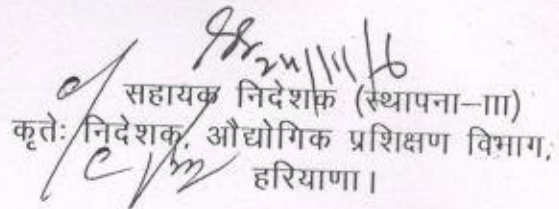 24/11/16
सहायक निदेशक (स्थापना–III)
कृतेः निदेशक, औद्योगिक प्रशिक्षण विभाग,
हरियाणा।